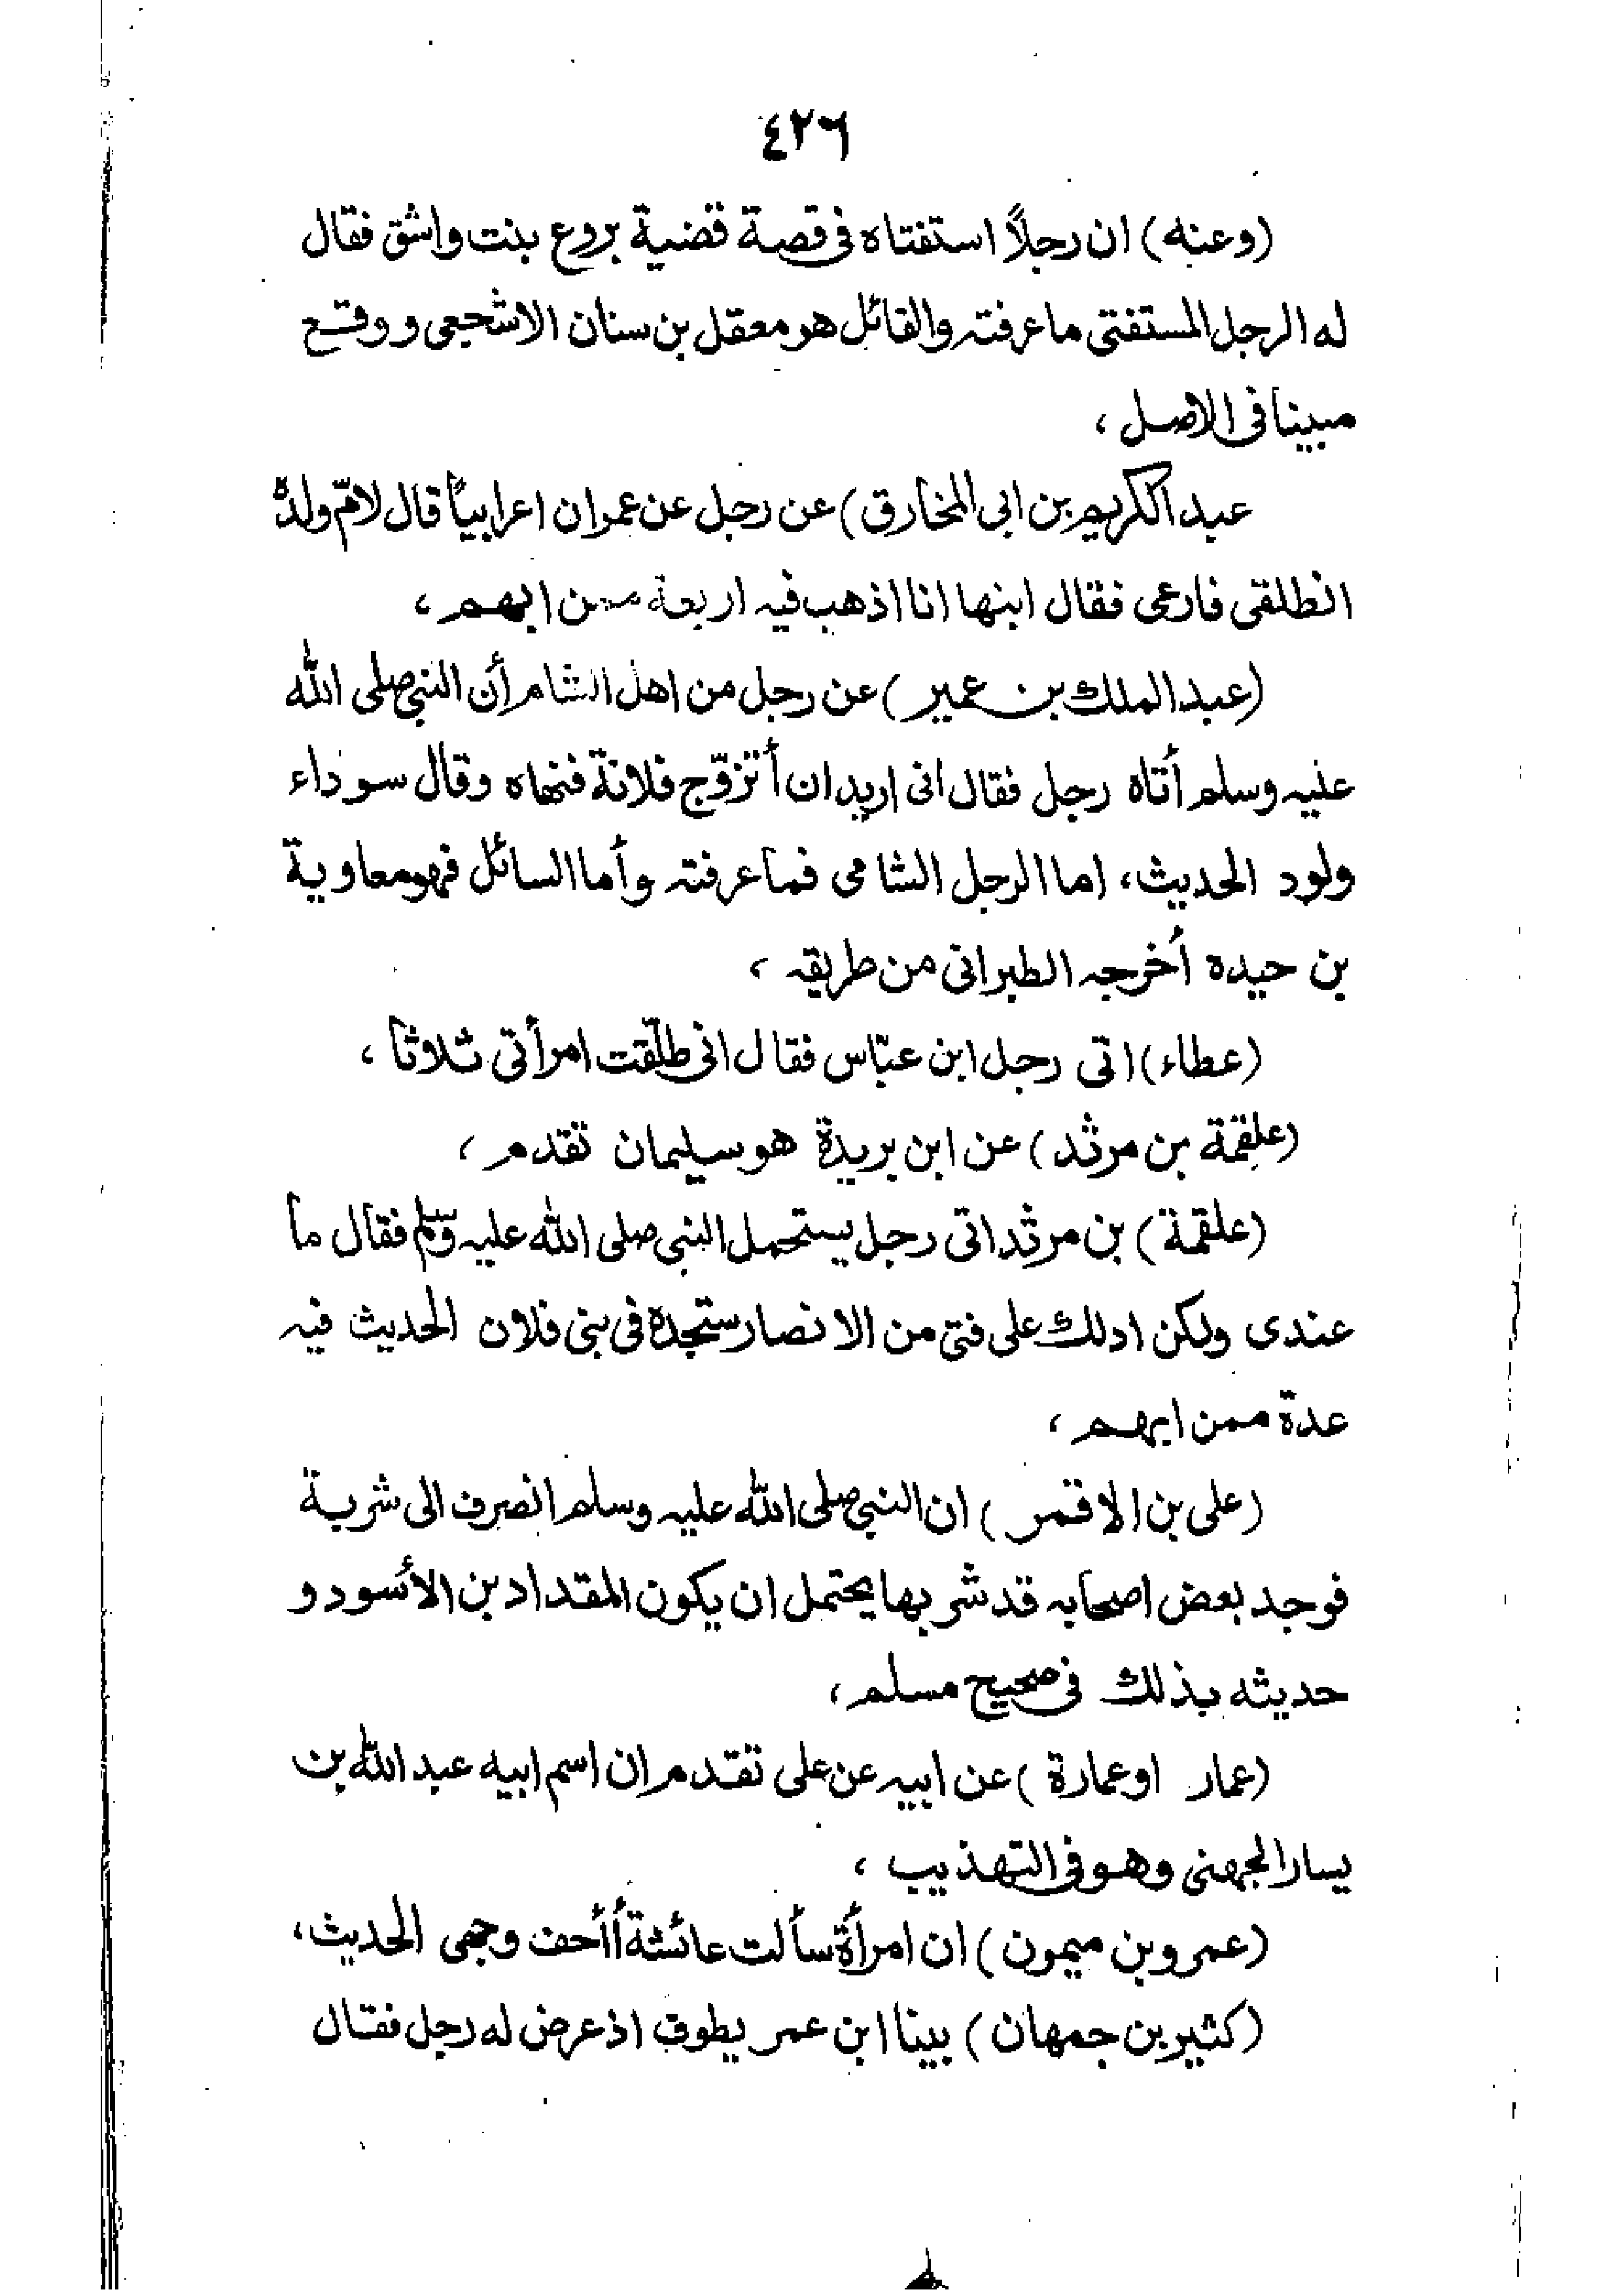 ٤٢٦
(وعنه) ان رجلاً استفتاه فى قصة قضية بروع بنت واشق فقال
له الرجل المستفتى ما عرفته والقائل هو معقل بن سنان الاشجعى ووقع
مبينا فى الاصل،
عبد الكريم بن ابى المخارق) عن رجل عن عمران اعرابياً قال لامّ ولدہ
انطلقى فارعى فقال ابنها انا اذهب فيه اربعة ممن ابهم،
(عبد الملك بن عمير) عن رجل من اهل الشام أن النبى صلى الله
عليه وسلم أتاه رجل فقال انى اريد ان أتزوّج فلانة فنهاه وقال سوداء
ولود الحديث، اما الرجل الشامى فما عرفته وأما السائل فهو معاوية
بن حيده أخرجه الطبرانى من طريقه،
(عطاء) اتى رجل ابن عبّاس فقال انى طلّقت امرأتى ثلاثا،
(علقمة بن مرثد) عن ابن بريدة هو سليمان تقدم،
(علقمة) بن مرثد اتى رجل يستحمل النبى صلى الله عليه وسلم فقال ما
عندى ولكن ادلك على فتى من الانصار ستجده فى بنى فلان الحديث فيه
عدة ممن ابهم،
(على بن الاقمر) ان النبى صلى الله عليه وسلم انصرف الى شربة
فوجد بعض اصحابه قد شربها يحتمل ان يكون المقداد بن الأسود و
حديثه بذلك فى صحيح مسلم،
(عمار اوعمارة) عن ابيه عن على تقدم ان اسم ابيه عبد الله بن
يسار الجهنى وهو فى التهذيب،
(عمرو بن ميمون) ان امرأة سألت عائشة أأحف وجهى الحديث،
(كثير بن جمهان) بينا ابن عمر يطوف اذ عرض له رجل فقال